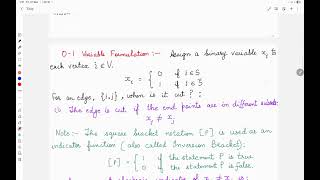 0-1 Variable Formulation :- Assign a binary variable xᵢ to
each vertex i ∈ V.
xᵢ = { 0 if i ∈ S
1 if i ∈ S̄
For an edge, {i,j}, when is it cut ? :
The edge is cut if the end points are in different
xᵢ ≠ xⱼ
Note :- The square bracket notation [P] is used as an
indicator function (also called Inversion Bracket):
[P] = { 1 if the statement P is true
0 if the statement P is false.
indicator of xᵢ ≠ xⱼ is :